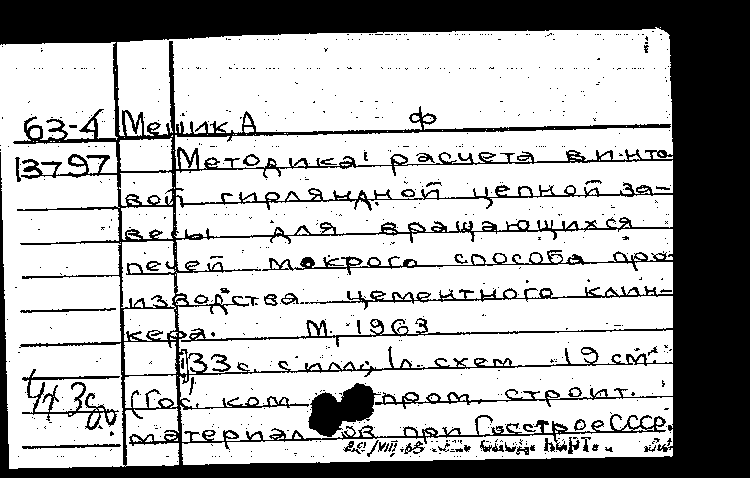 63-4 Мешик, А ф
13797 Методика расчета винто-
вой гирляндной цепной за-
весы для вращающихся
печей мокрого способа про-
изводства цементного клин-
кера. М, 1963
33с. с илл; 1л. схем 19 см.
(Гос. ком пром. строит.
материалов при Госстрое СССР.